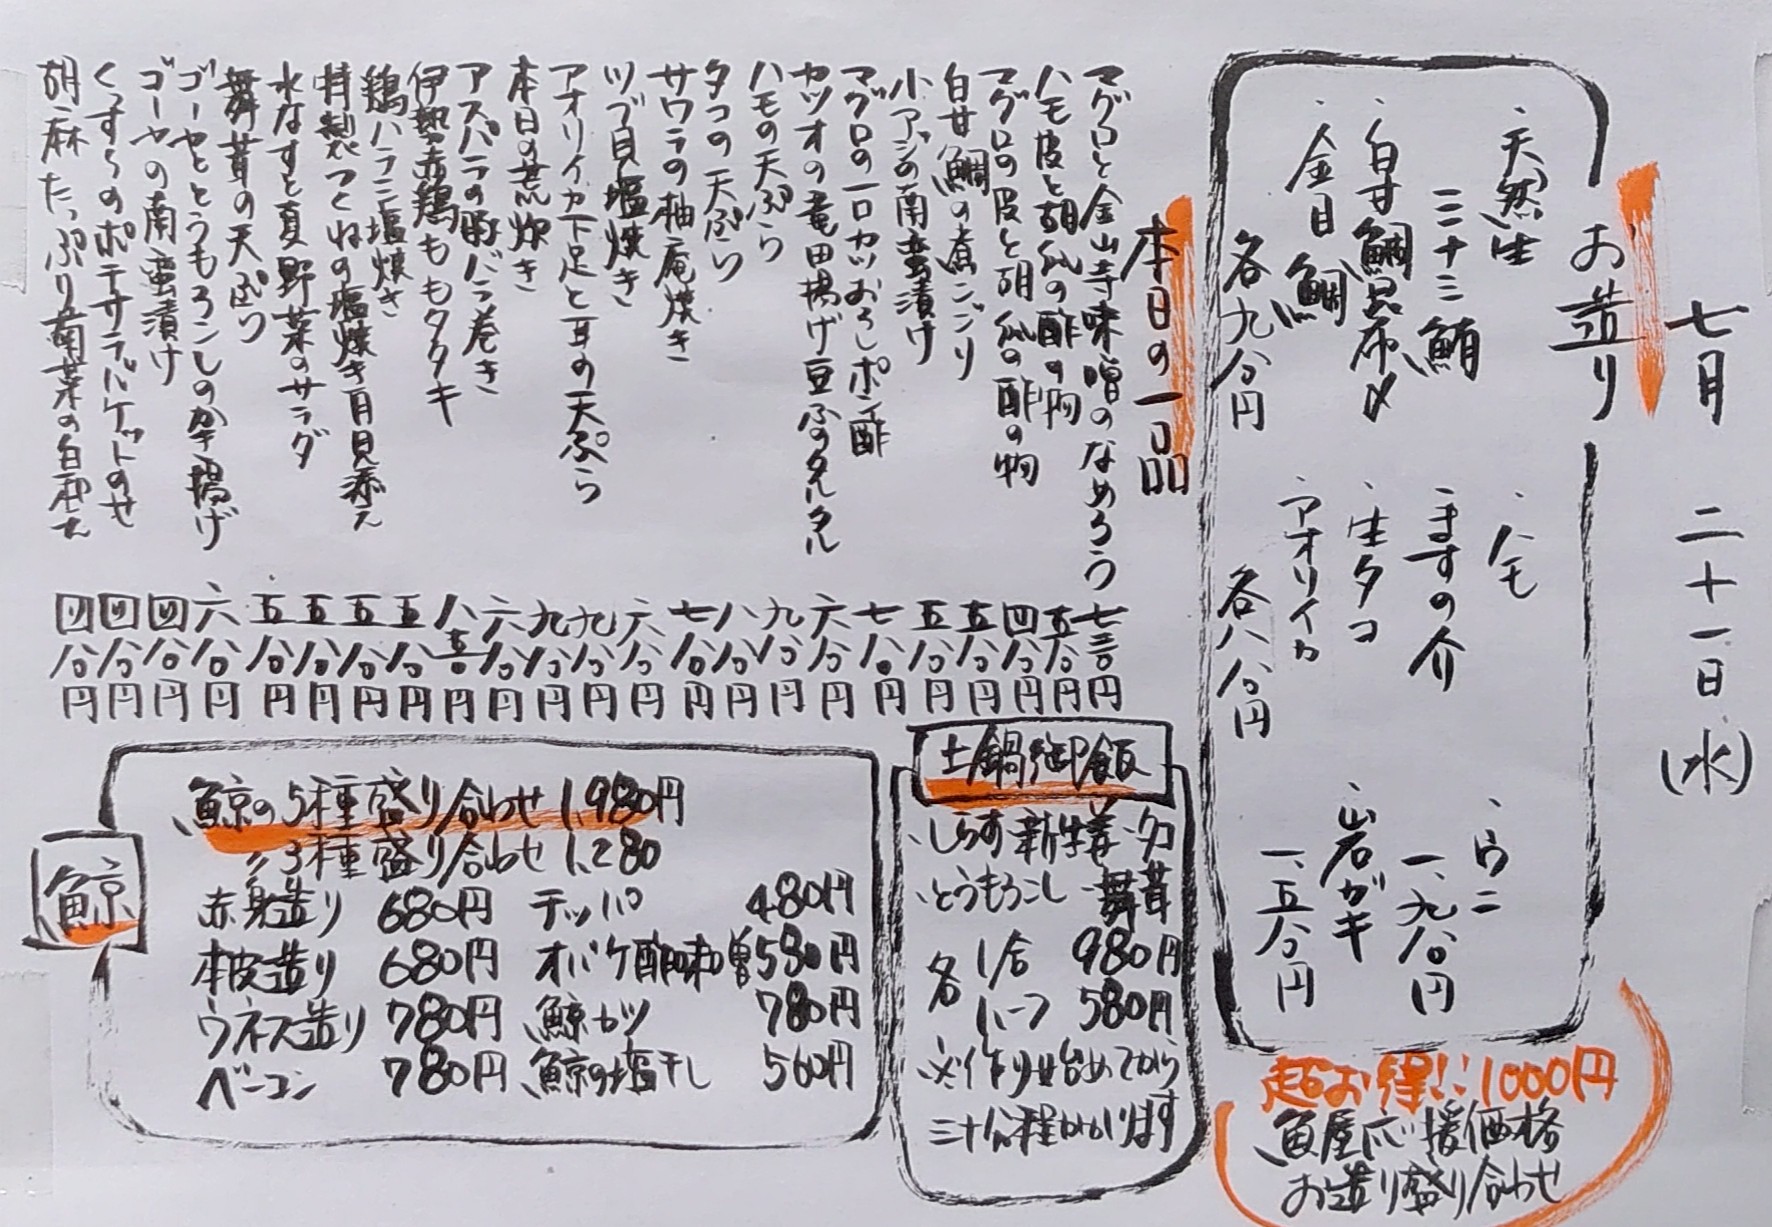 七月 二十一日(水)
お造り
・天然生
ミナミ鮪
・白甘鯛昆布〆
・金目鯛
各九八〇円
・ハモ
・ますの介
・生タコ
・アオリイカ
各八八〇円
・ウニ
一、九八〇円
・岩ガキ
一、五八〇円
超お得!! 1000円
魚屋応援価格
お造り盛り合わせ
本日の一品
マグロと金山寺味噌のなめろう 七三〇円
ハモ皮と胡瓜の酢の物 五八〇円
マグロの皮と胡瓜の酢の物 四八〇円
白甘鯛の煮こごり 五八〇円
小アジの南蛮漬け 五八〇円
マグロの一口カツおろしポン酢 七八〇円
カツオの竜田揚げ豆ふのタルタル 六八〇円
ハモの天ぷら 九八〇円
タコの天ぷら 八八〇円
サワラの柚庵焼き 七八〇円
ツブ貝塩焼き 六八〇円
アオリイカ下足と耳の天ぷら 九八〇円
本日の荒炊き 九八〇円
アスパラの豚バラ巻き 六八〇円
伊勢赤鶏ももタタキ 八三〇円
鶏ハラミ塩焼き 五八〇円
特製つくねの塩焼き月見添え 五八〇円
水なすと夏野菜のサラダ 五八〇円
舞茸の天ぷら 五八〇円
ゴーヤととうもろこしのかき揚げ 六八〇円
ゴーヤの南蛮漬け 四八〇円
くっすらのポテサラバケットのせ 四八〇円
胡麻たっぷり菊菜の白和え 四八〇円
土鍋御飯
・しらす新生姜・タコ
・とうもろこし・舞茸
各 1合 980円
ハーフ 580円
※作り始めてから
三十分程かかります
鯨
鯨の5種盛り合わせ 1,980円
〃 3種盛り合わせ 1,280
赤身造り 680円
本皮造り 680円
ウネス造り 780円
ベーコン 780円
テッパ 480円
オバケ酢味噌 580円
鯨カツ 780円
鯨の塩干し 560円